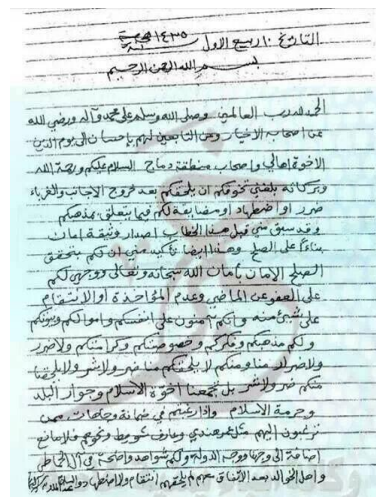 التاريخ ١٠ ربيع الاول ١٤٣٥ هجرية
بسم الله الرحمن الرحيم
الحمد لله رب العالمين وصلى الله وسلم على محمد وآله ورضي الله
عن اصحابه الاخيار وعن التابعين لهم بإحسان الى يوم الدين
الاخوة اهالي واصحاب منطقة دماج السلام عليكم ورحمة الله
وبركاته بلغني تخوفكم ان يلحقكم بعد خروج الاجانب والغرباء
ضرر او اضطهاد او مضايقة لكم فيما يتعلق بمذهبكم
وقد سبق مني قبل هذا الخطاب اصدار وثيقة امان
بناءً على الصلح وهذا ايضا تأكيد مني انكم بتحقق
الصلح الامان بأمان الله سبحانه وتعالى ووجهي لكم
على العفو عن الماضي وعدم المؤاخذة او الانتقام
على شيء منه وانكم آمنون على انفسكم واموالكم وبيوتكم
ولكم مذهبكم وفكركم وخصوصيتكم وكرامتكم ولا ضرر
ولا ضرار منا ومنكم لا يلحقكم منا ضر ولا شر ولا يلحقنا
منكم ضر ولا شر بل تجمعنا اخوة الاسلام وجوار البلد
وحرمة الاسلام واذا رغبتم في ضمانة وجاهات ممن
ترغبون اليهم مثل عمر هندي وعارف شويط ونحوهم فلا مانع
اضافة الى وجهنا ووجه الدولة ولكم شواهد واضحة في آل
واهل الخوالد بعد الاتفاق معهم لم يلحقهم انتقام ولا اضطهاد